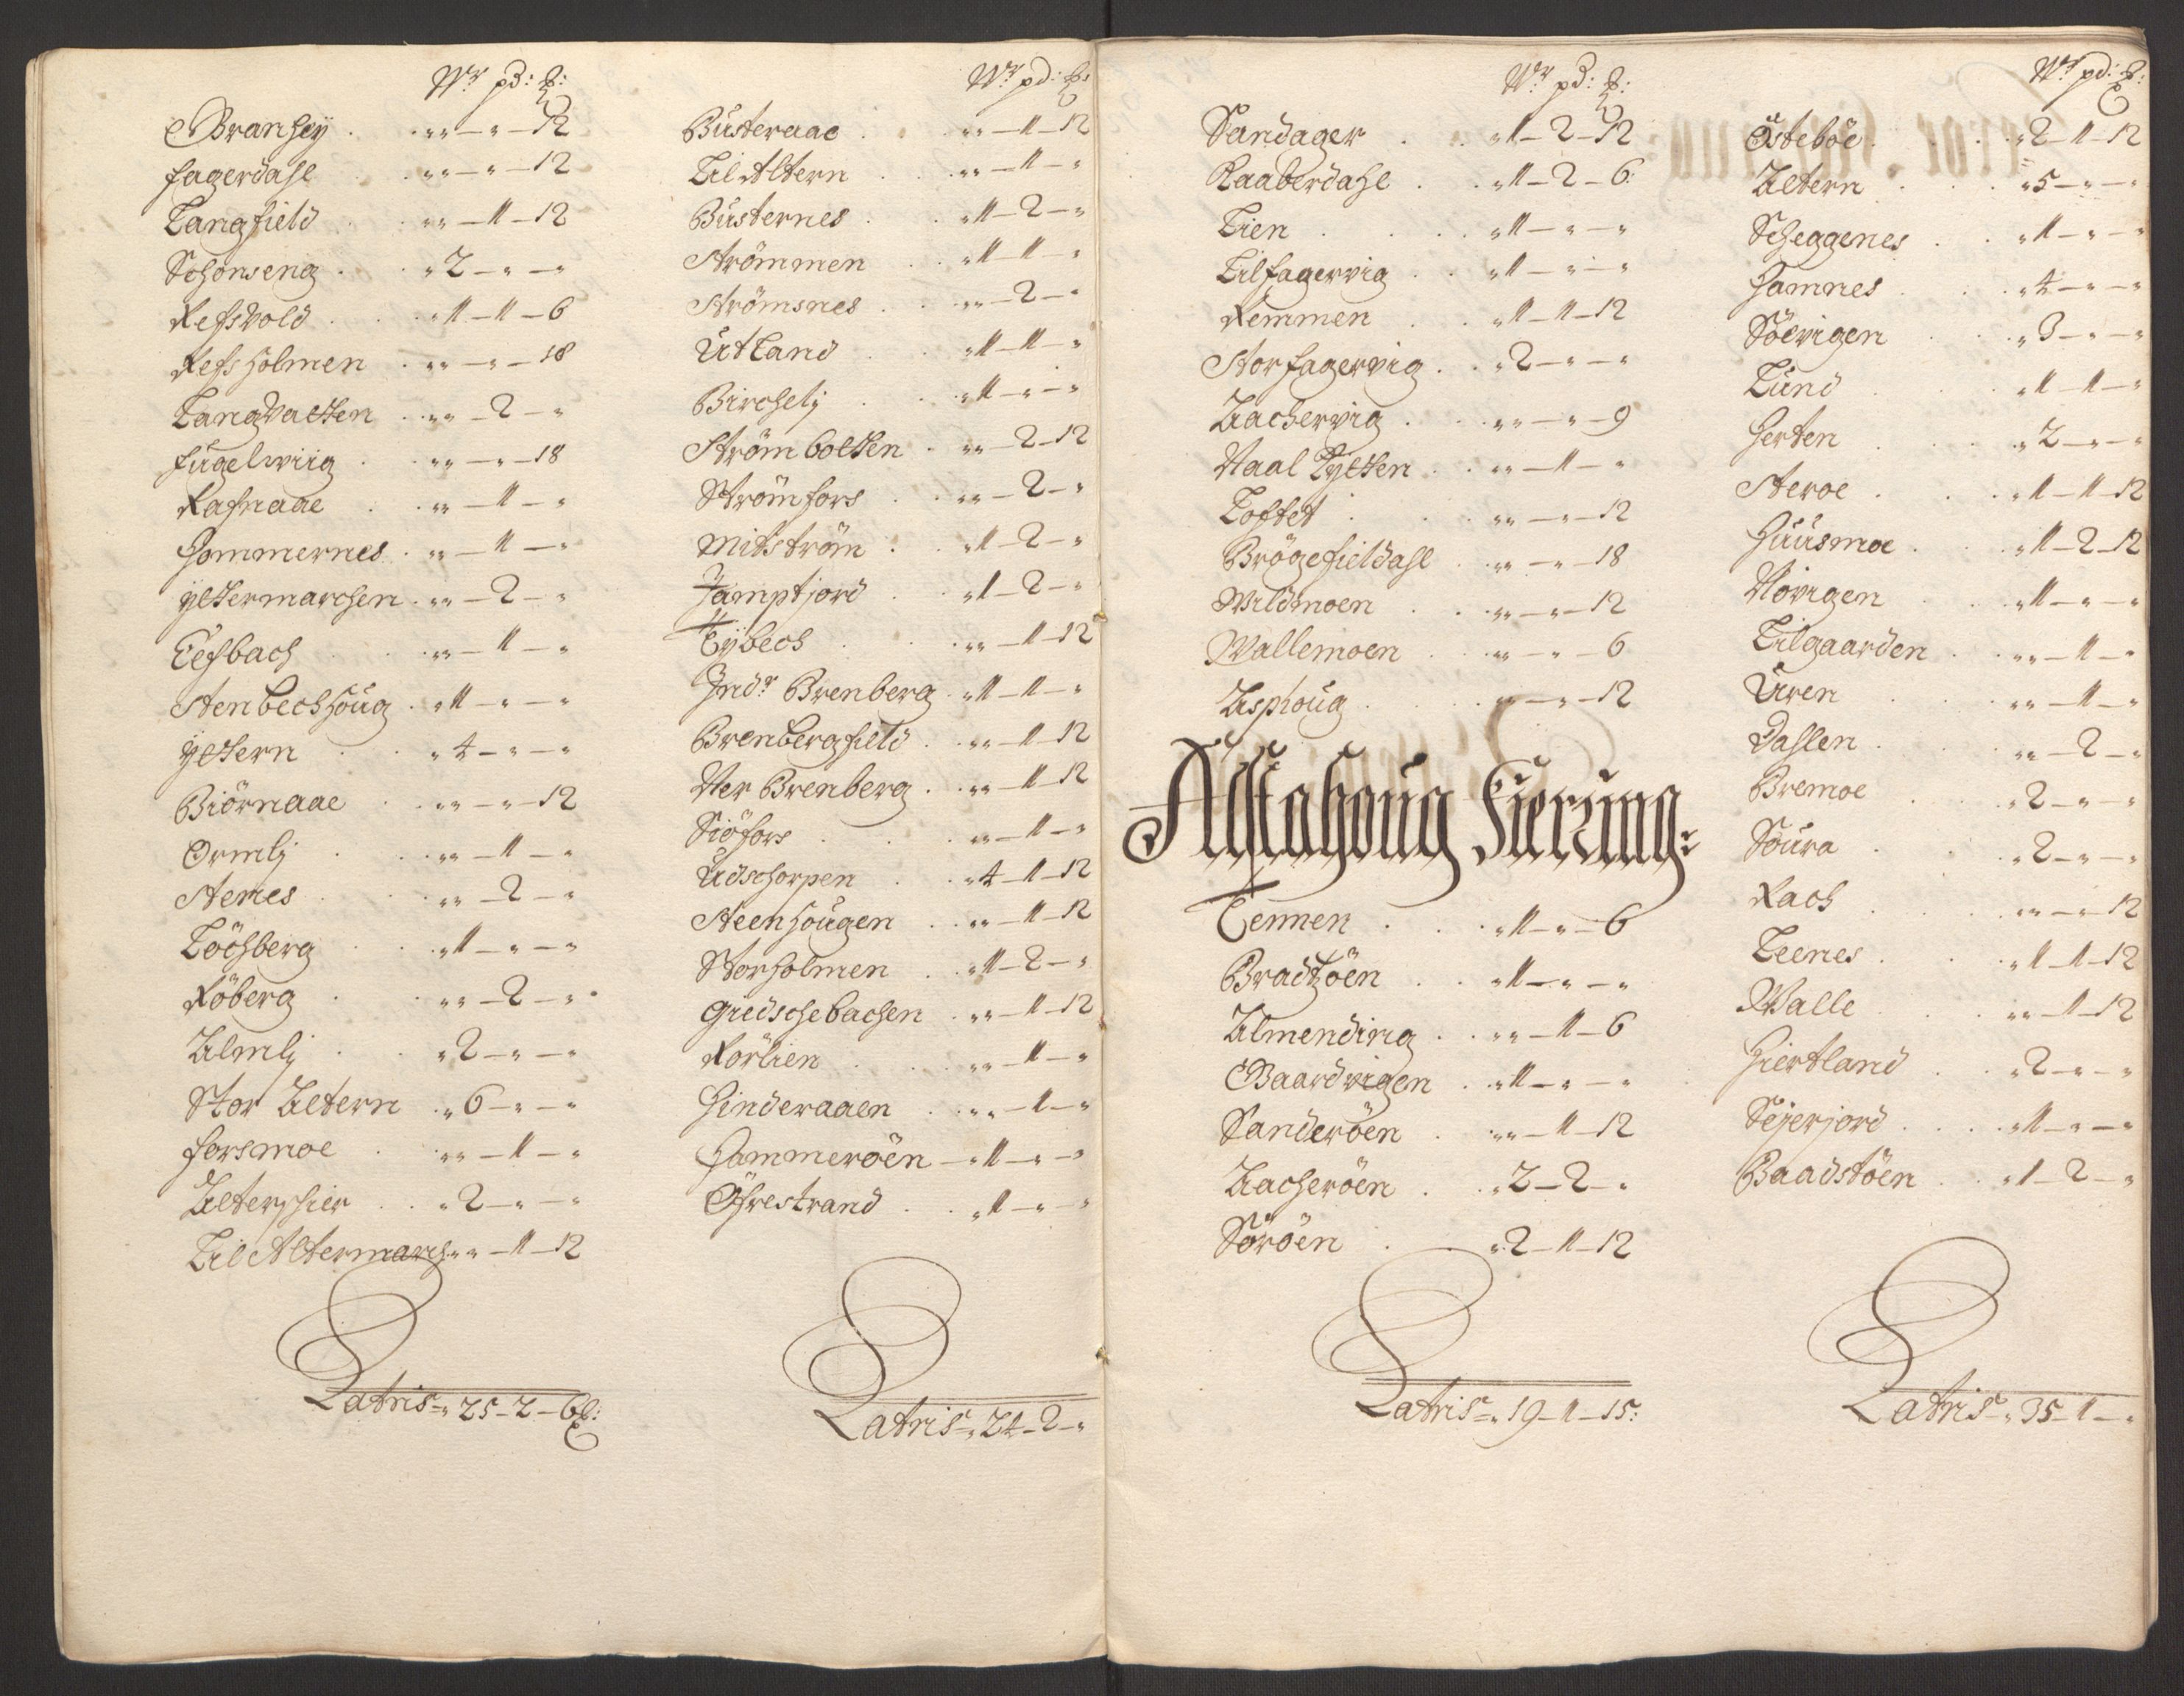 Wr pd: ℔:
Branhey . „„ – „ – 12
fagerdahl „„ – „ – 12
Langfield „„ – 1 – 12
Schonseng . „ 2 – „ – „
Refsvold . „ 1 – 1 – 6
Refsholmen . „„ – „ – 18
Langvatten . „„ – 2 – „
fugelwiig . „„ – „ – 18
Rafnaae . „„ – 1 – „
Hommernes . „„ – 1 – „
yttermarchen . „„ – 2 – „
Eefbach . „„ – 1 – „
Stenbechhoug . „ 1 – „ – „
yttern . „ 4 – „ – „
Biörnaae . „„ – „ – 12
Ormlj . „„ – 1 – „
Stemes . „„ – 2 – „
Löchberg . „ 1 – „ – „
Röberg . „„ – 2 – „
Almlj . „ 2 – „ – „
Stor Altern . „ 6 – „ – „
forsmoe . „„ – 1 – „
Alterschier . „ 2 – „ – „
Lil Altermarch „„ – 1 – 12
Latris „ 25 – 2 – 6 ℔:
Wr pd: ℔:
Busteraae . „„ – 1 – 12
Lil Altern . „„ – 1 – „
Busternes . „ 1 – 2 – „
Strömmen „ 1 – 1 – „
Strömsnes . „„ – 2 – „
Utland . „ 1 – 1 – „
Birchelj . „ 1 – „ – „
Strömbotten . „„ – 2 – 12
Strömfors . „„ – 2 – „
Mitström . „ 1 – 2 – „
Jamptjord . „ 1 – 2 – „
Tybech . „„ – 1 – 12
Indr Brenberg . „ 1 – 1 – „
Brenbergfield . „„ – 1 – 12
Ner Brenberg . „„ – 1 – 12
Siöfors . „„ – 1 – „
Udschorpen . „ 4 – 1 – 12
Steenhougen . „„ – 1 – 12
Storholmen . „ 1 – 2 – „
Giedschebachen . „„ – 1 – 12
Rörlien . „„ – 1 – „
Hinderaaen . „„ – 1 – „
Hammeröen – „ 1 – „ – „
Öfrestrand . „ 1 – „ – „
Latris „ 24 – 2 – „
Wr pd: ℔:
Sandager . „ 1 – 2 – 12
Raaberdahl . „ 1 – 2 – 6
Lien . „ 1 – „ – „
Lilfagervig . „ 1 – „ – „
Remmen . „ 1 – 1 – 12
Storfagervig . „ 2 – „ – „
Aachervig . „„ – „ – 9
Naal Lytten . „„ – 1 – „
Loftet . „„ – „ – 12
Brögefieldahl . „„ – „ – 18
Wildmoen . „„ – „ – 12
Wallemoen . „„ – „ – 6
Asphoug . „„ – „ – 12
Alstahoug Fierung:
Tennen . „ 1 – „ – 6
Bradtzöen . „ 1 – „ – „
Almending . „„ – 1 – 6
Baardvigen . „ 1 – „ – „
Sanderöen . „„ – 1 – 12
Aacheröen . „ 2 – 2 – „
Söröen . „ 2 – 1 – 12
Latris „ 19 – 1 – 15:
Wr pd: ℔:
Östeböe . „ 2 – 1 – 12
Altern . „ 5 – „ – „
Scheggenes . „ 1 – „ – „
Hamnes . „ 4 – „ – „
Söevigen . „ 3 – „ – „
Lund . „ 1 – 1 – „
Herten . „ 2 – „ – „
Steroe . „ 1 – 1 – 12
Huusmoe . „ 1 – 2 – 12
Növigen . „ 1 – „ – „
Lilgaarden . „„ – 1 – „
Uren . „„ – 1 – „
Dahlen . „„ – 2 – „
Bremoe . „ 2 – „ – „
Soura . „ 2 – „ – „
Rach . „„ – „ – 12
Leenes . „ 1 – 1 – 12
Walle . „„ – 1 – 12
Hiertland . „ 2 – „ – „
Sejerjord . „ 1 – „ – „
Baadstöen . „ 1 – 2 – „
Latris „ 35 – 1 – „